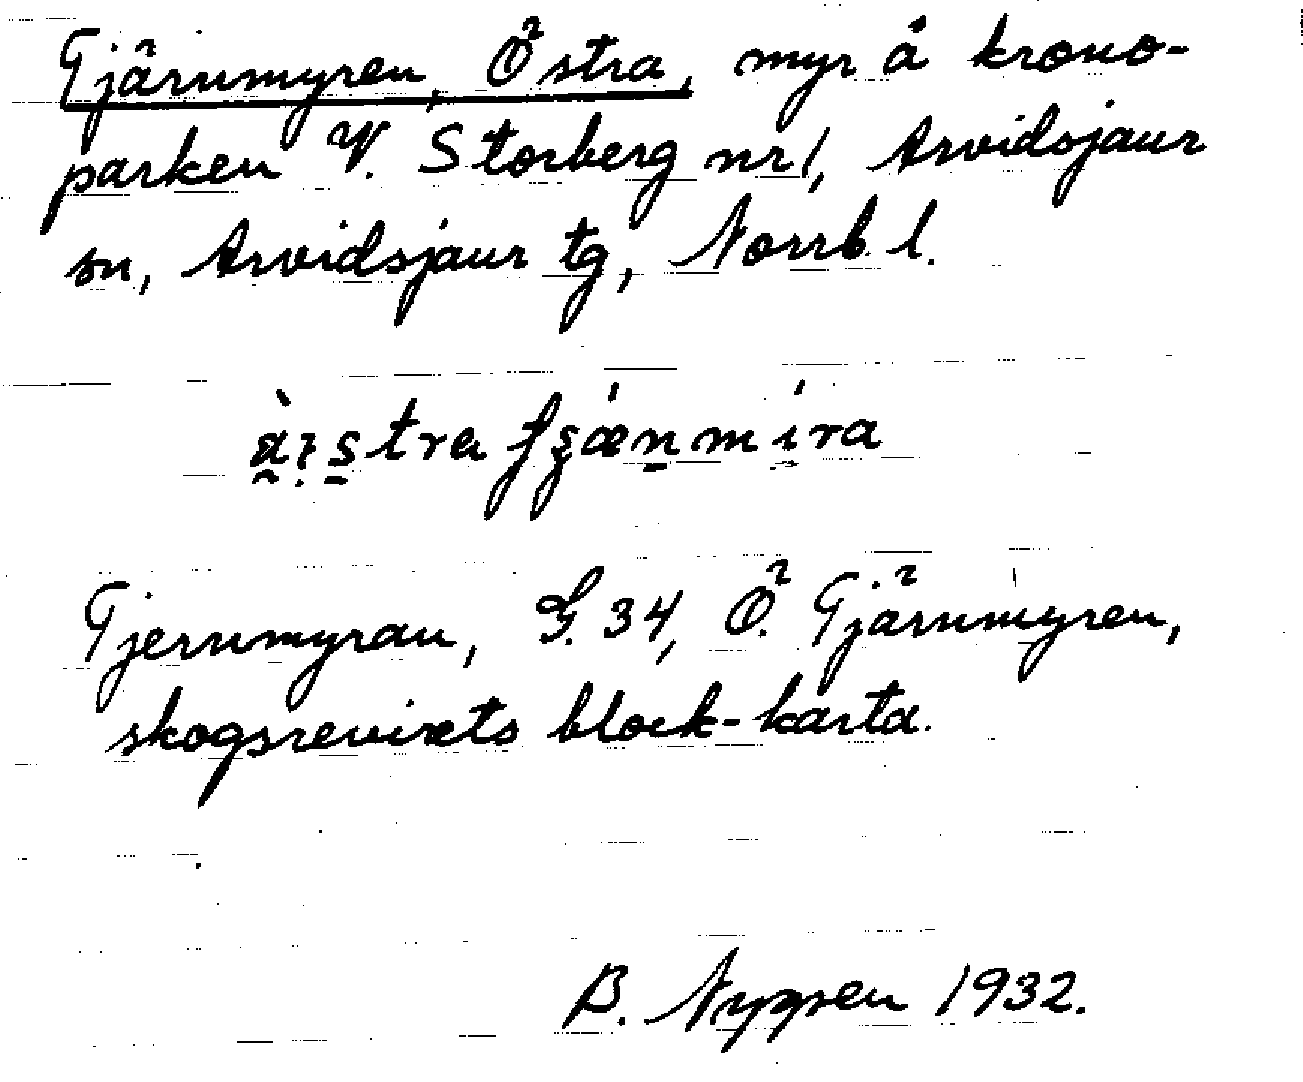 Tjärnmyren, Östra, myr å krono-
parken V. Storberg nr 1, Arvidsjaur
sn, Arvidsjaur tg, Norrb. l.
Tjernmyran, G. 34, Ö. Tjärnmyren,
skogsrevirets block-karta.
B. Nygren 1932.